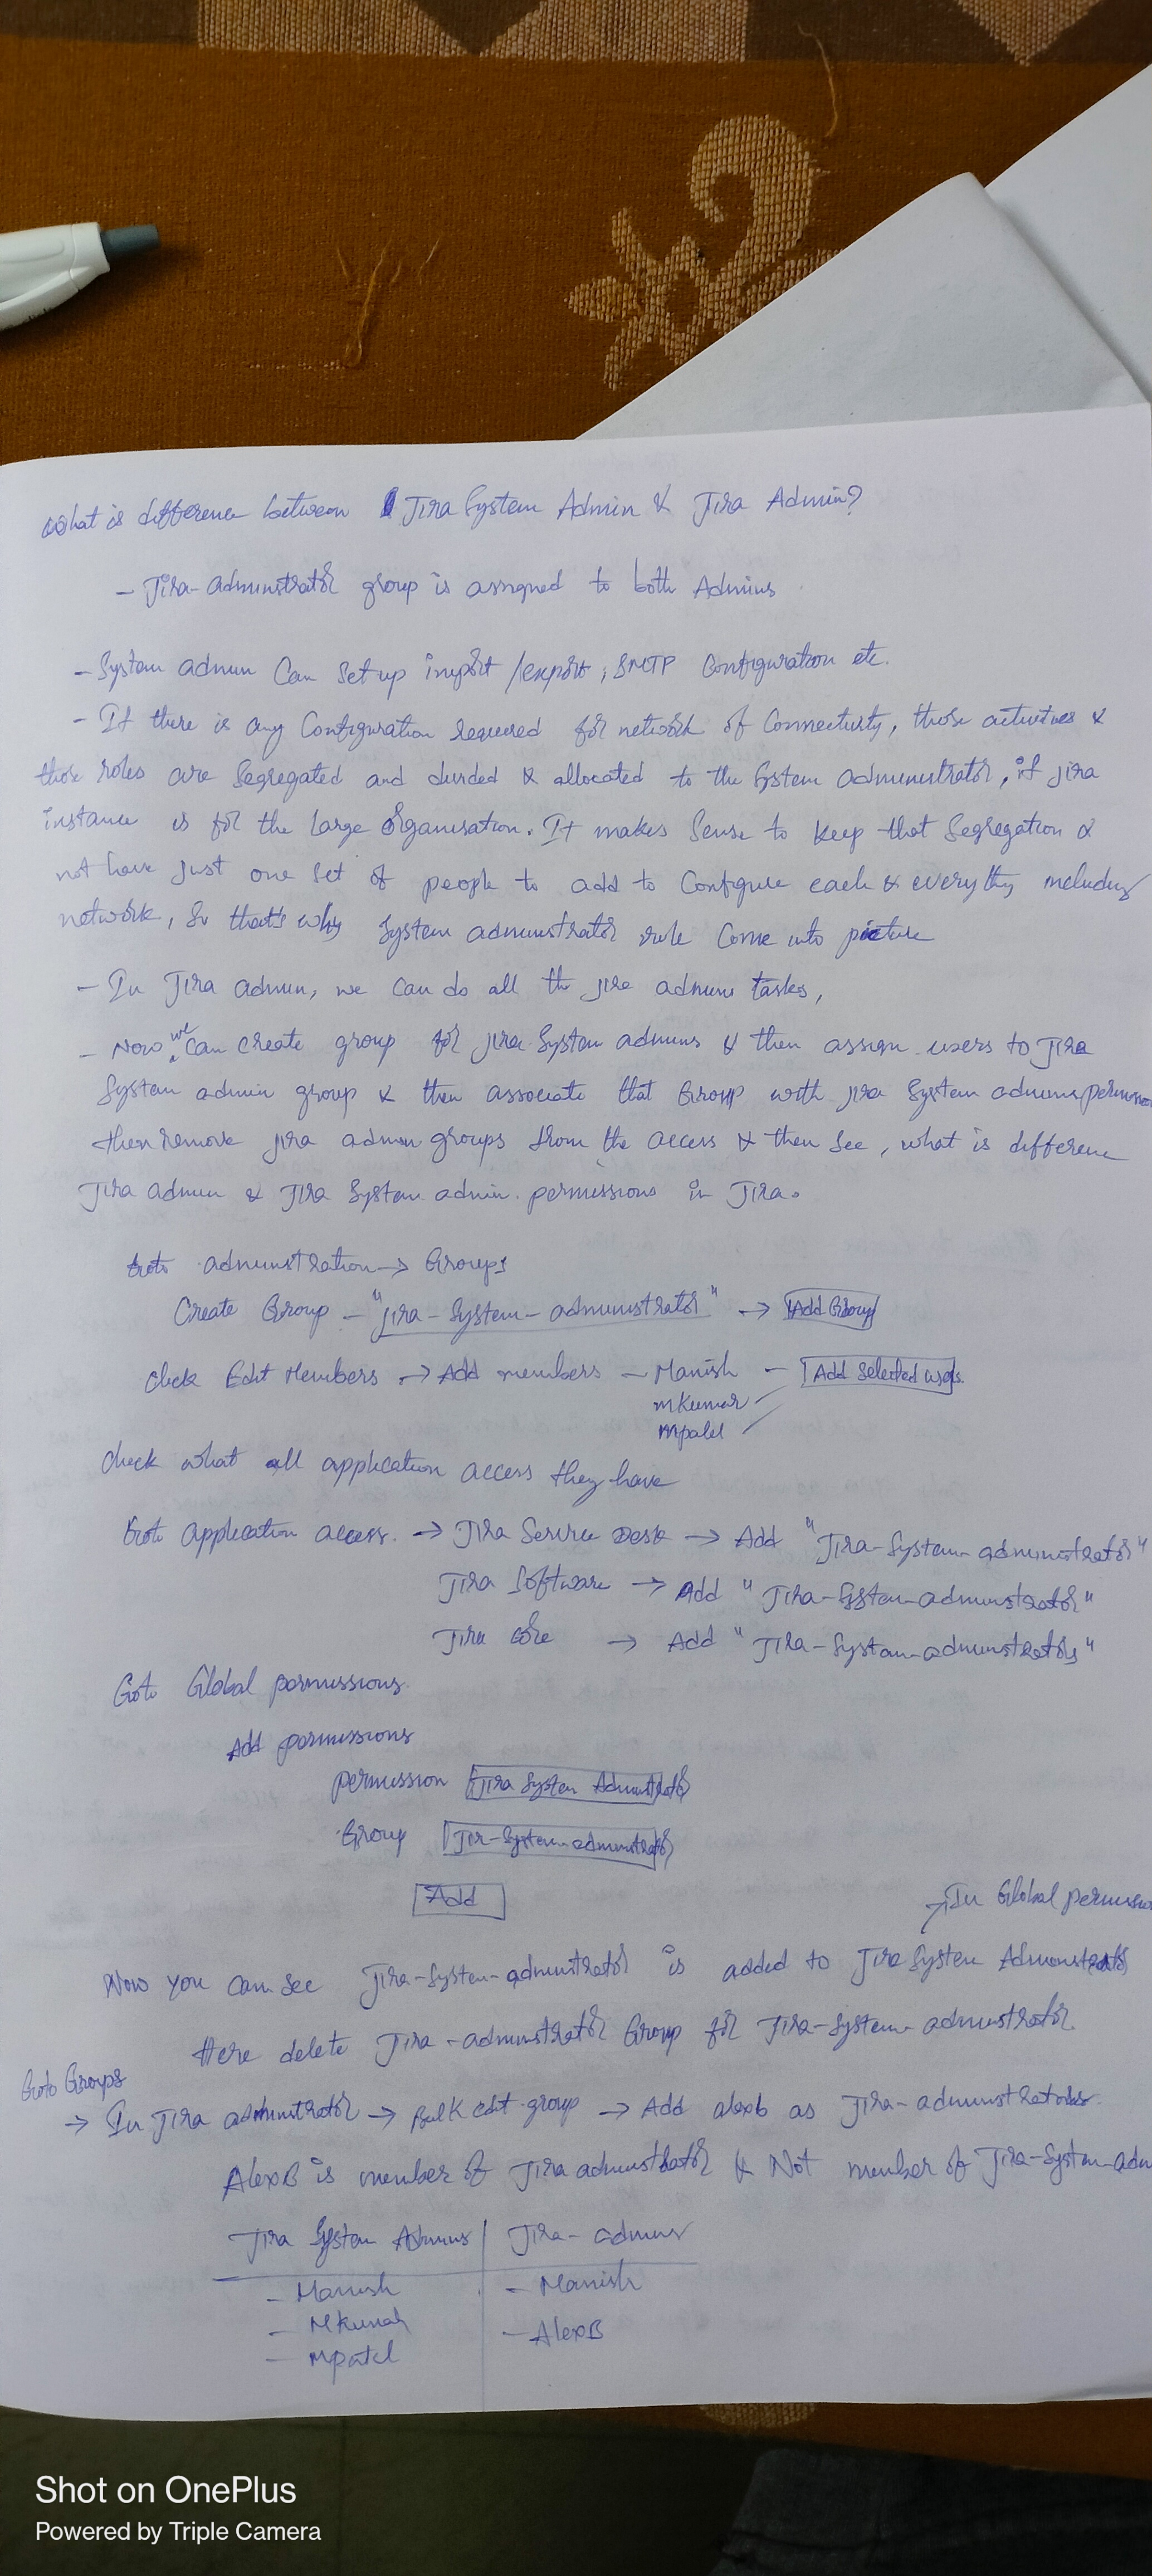 What is difference between Jira System Admin & Jira Admin?
- Jira-administrator group is assigned to both Admins
- System admin Can Set up import/export, SMTP Configuration etc.
- If there is any Configuration required for network of Connectivity, those activities &
those roles are Segregated and divided & allocated to the System administrator, if jira
instance is for the large Organisation. It makes Sense to keep that Segregation &
not have just one set of people to add to Configure each & everythg including
network, So that's why System administrator role Come into picture
- In Jira admin, we can do all the jira admin tasks,
- Now we can create group for jira System admins & then assign users to Jira
System admin group & then associate that Group with jira System admins
then remove jira admin groups from the access & then see, what is difference
Jira admin & Jira System admin permissions in Jira.
Goto administration → Groups
Create Group - "jira-System-administrator" → Add Group
click Edit Members → Add members - Manish - Add Selected
mkumar
mpatel
check what all application access they have
Goto application access. → Jira Service Desk → Add "Jira-System-administrator"
Jira Software → Add "Jira-System-administrator"
Jira Core → Add "Jira-System-administrators"
Goto Global permissions
Add permissions
permission Jira System Administrator
Group Jir-System-administrator
Add
→ In Global
Now you can see Jira-System-administrator is added to Jira System
Here delete Jira-administrator Group for Jira-System-administrator
Goto Groups
→ In Jira administrator → Bulk edit group → Add alexb as Jira-administrators
AlexB is member of Jira administrator & Not member of Jira-System-adm
Jira System Admins Jira-admins
- Manish - Manish
- Mkumar - AlexB
- mpatel
Shot on OnePlus
Powered by Triple Camera